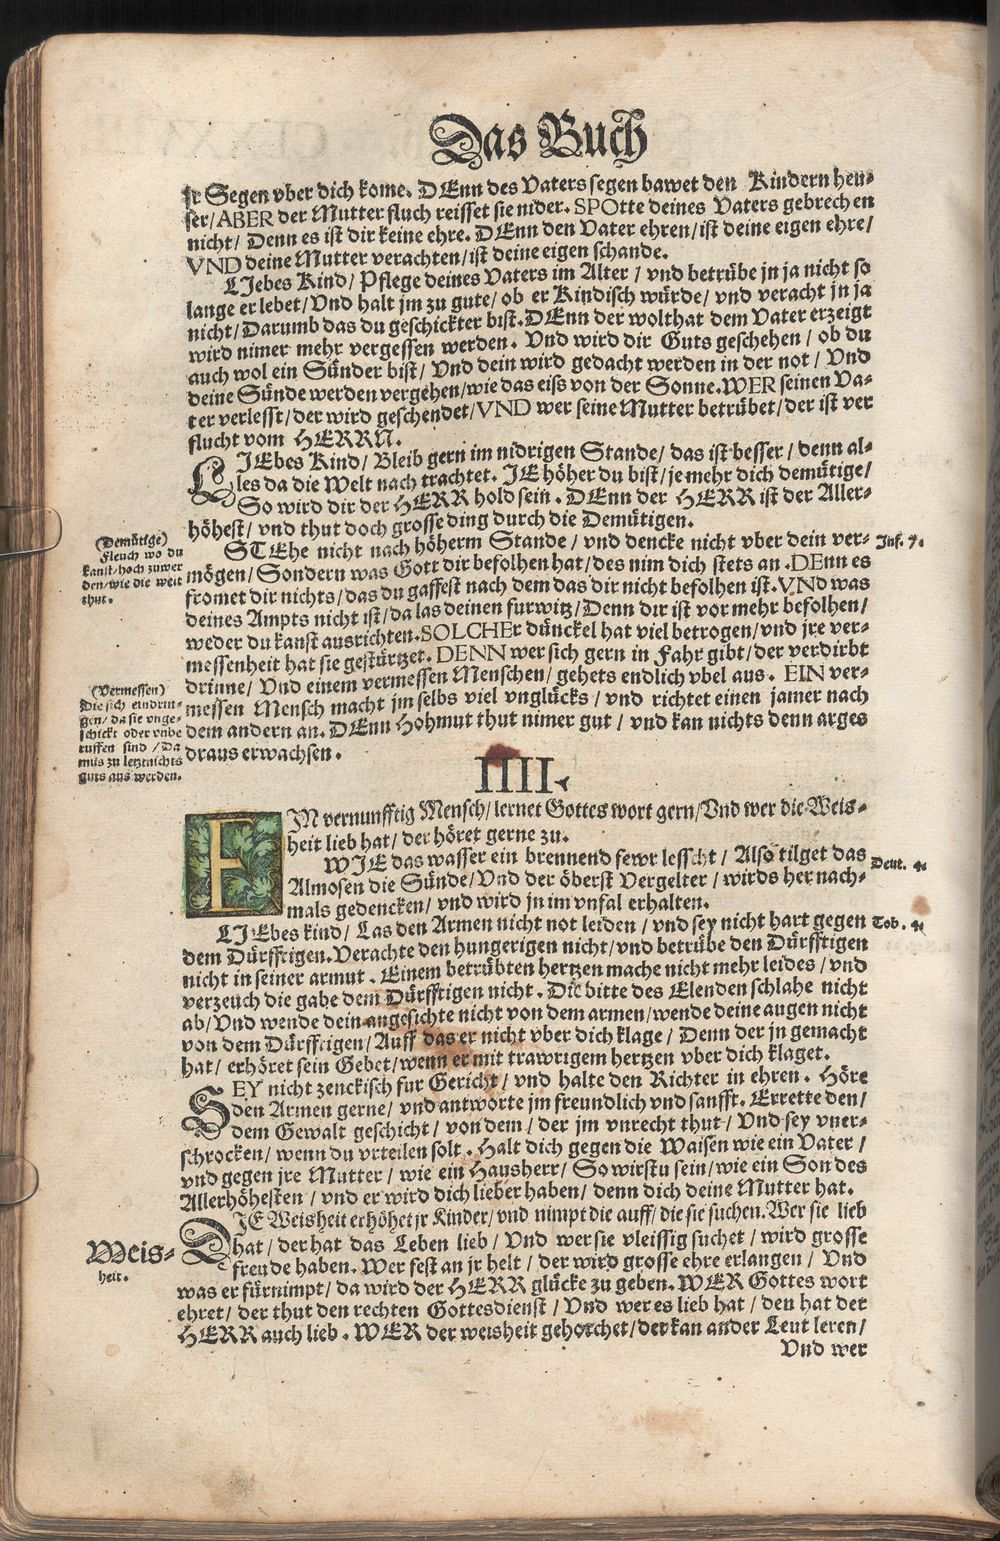 Das Buch
Jr Segen vber dich kome. DEnn des Vaters segen bawet den Kindern heu-
ser/ ABER der Mutter fluch reisset sie nider. SPOtte deines Vaters gebrechen
nicht/ Denn es ist dir keine ehre. DEnn den Vater ehren/ ist deine eigen ehre/
VND deine Mutter verachten/ ist deine eigen schande.
LJebes Kind/ Pflege deines Vaters im Alter/ vnd betrübe jn ja nicht so
lange er lebet/ Vnd halt jm zu gute/ ob er Kindisch würde/ vnd veracht jn ja
nicht/ Darumb das du geschickter bist. DEnn der wolthat dem Vater erzeigt
wird nimer mehr vergessen werden. Vnd wird dir Guts geschehen/ ob du
auch wol ein Sünder bist/ Vnd dein wird gedacht werden in der not/ Vnd
deine Sünde werden vergehen/ wie das eiss von der Sonne. WER seinen Va-
ter verlesst/ der wird geschendet/ VND wer seine Mutter betrübet/ der ist ver
flucht vom HERRN.
LJEbes Kind/ Bleib gern im nidrigen Stande/ das ist besser/ denn al-
les da die Welt nach trachtet. JE höher du bist/ je mehr dich demütige/
So wird dir der HERR hold sein. DEnn der HERR ist der Aller-
höhest/ vnd thut doch grosse ding durch die Demütigen.
STEhe nicht nach höherm Stande/ vnd dencke nicht vber dein ver-
mögen/ Sondern was Gott dir befolhen hat/ des nim dich stets an. DEnn es
fromet dir nichts/ das du gaffest nach dem das dir nicht befolhen ist. VNd was
deines Ampts nicht ist/ da las deinen furwitz/ Denn dir ist vor mehr befolhen/
weder du kanst ausrichten. SOLCHEr dünckel hat viel betrogen/ vnd jre ver-
messenheit hat sie gestürtzet. DENN wer sich gern in Fahr gibt/ der verdirbt
drinne/ Vnd einem vermessen Menschen/ gehets endlich vbel aus. EIN ver-
messen Mensch macht jm selbs viel vnglücks/ vnd richtet einen jamer nach
dem andern an. DEnn Hohmut thut nimer gut/ vnd kan nichts denn arges
draus erwachsen.
Inf. 7.
(Demütige)
Fleuch wo du
kanst/ hoch zuwer
den/ wie die welt
thut.
(Vermessen)
Die sich eindrin-
gen/ da sie vnge-
schickt oder vnbe
ruffen sind/ Da
mus zu letzt nichts
guts aus werden.
IIII.
EJN vernunfftig Mensch/ lernet Gottes wort gern/ Vnd wer die Weis-
heit lieb hat/ der höret gerne zu.
WJE das wasser ein brennend fewr lesscht/ Also tilget das
Almosen die Sünde/ Vnd der öberst Vergelter/ wirds her nach-
mals gedencken/ vnd wird jn im vnfal erhalten.
Deut. 4.
LJEbes kind/ Las den Armen nicht not leiden/ vnd sey nicht hart gegen
dem Dürfftigen. Verachte den hungerigen nicht/ vnd betrübe den Dürfftigen
nicht in seiner armut. Einem betrübten hertzen mache nicht mehr leides/ vnd
verzeuch die gabe dem Dürfftigen nicht. Die bitte des Elenden schlahe nicht
ab/ Vnd wende dein angesichte nicht von dem armen/ wende deine augen nicht
von dem Dürfftigen/ Auff das er nicht vber dich klage/ Denn der jn gemacht
hat/ erhöret sein Gebet/ wenn er mit trawrigem hertzen vber dich klaget.
Tob. 4.
SEY nicht zenckisch fur Gericht/ vnd halte den Richter in ehren. Höre
den Armen gerne/ vnd antworte jm freundlich vnd sanfft. Errette den/
dem Gewalt geschicht/ von dem/ der jm vnrecht thut/ Vnd sey vner-
schrocken/ wenn du vrteilen solt. Halt dich gegen die Waisen wie ein Vater/
vnd gegen jre Mutter/ wie ein Hausherr/ So wirstu sein/ wie ein Son des
Allerhöhesten/ vnd er wird dich lieber haben/ denn dich deine Mutter hat.
DJE Weisheit erhöhet jr Kinder/ vnd nimpt die auff/ die sie suchen. Wer sie lieb
hat/ der hat das Leben lieb/ Vnd wer sie vleissig suchet/ wird grosse
freude haben. Wer fest an jr helt/ der wird grosse ehre erlangen/ Vnd
was er fürnimpt/ da wird der HERR glücke zu geben. WER Gottes wort
ehret/ der thut den rechten Gottesdienst/ Vnd wer es lieb hat/ den hat der
HERR auch lieb. WER der weisheit gehorchet/ der kan ander Leut leren/
Weis-
heit.
Vnd wer